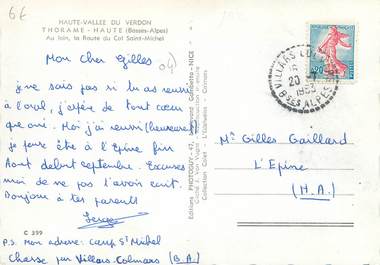 6€
HAUTE-VALLEE DU VERDON
THORAME - HAUTE (Basses-Alpes)
Au loin, la Route du Col Saint-Michel
04
Mon cher Gilles
je ne sais pas si tu as réussi
à l'oral, j'espère de tout cœur
que oui. Moi j'ai réussi (heureusement)
je pense être à l'Epine fin
Aout début septembre. Excuses
moi de ne pas t'avoir écrit.
Bonjour à tes parents
Serge
C 399
P.S. Mon adresse: Camp St Michel
Chasse par Villars-Colmars (B.A.)
Editions PHOTOGUY - 47, Boulevard Gambetta - NICE
Collection Colet Colmars
VILLARS-COLMARS
20
1963
BSES ALPES
0,20
Mr Gilles Gaillard
L'Epine
(H.A.)